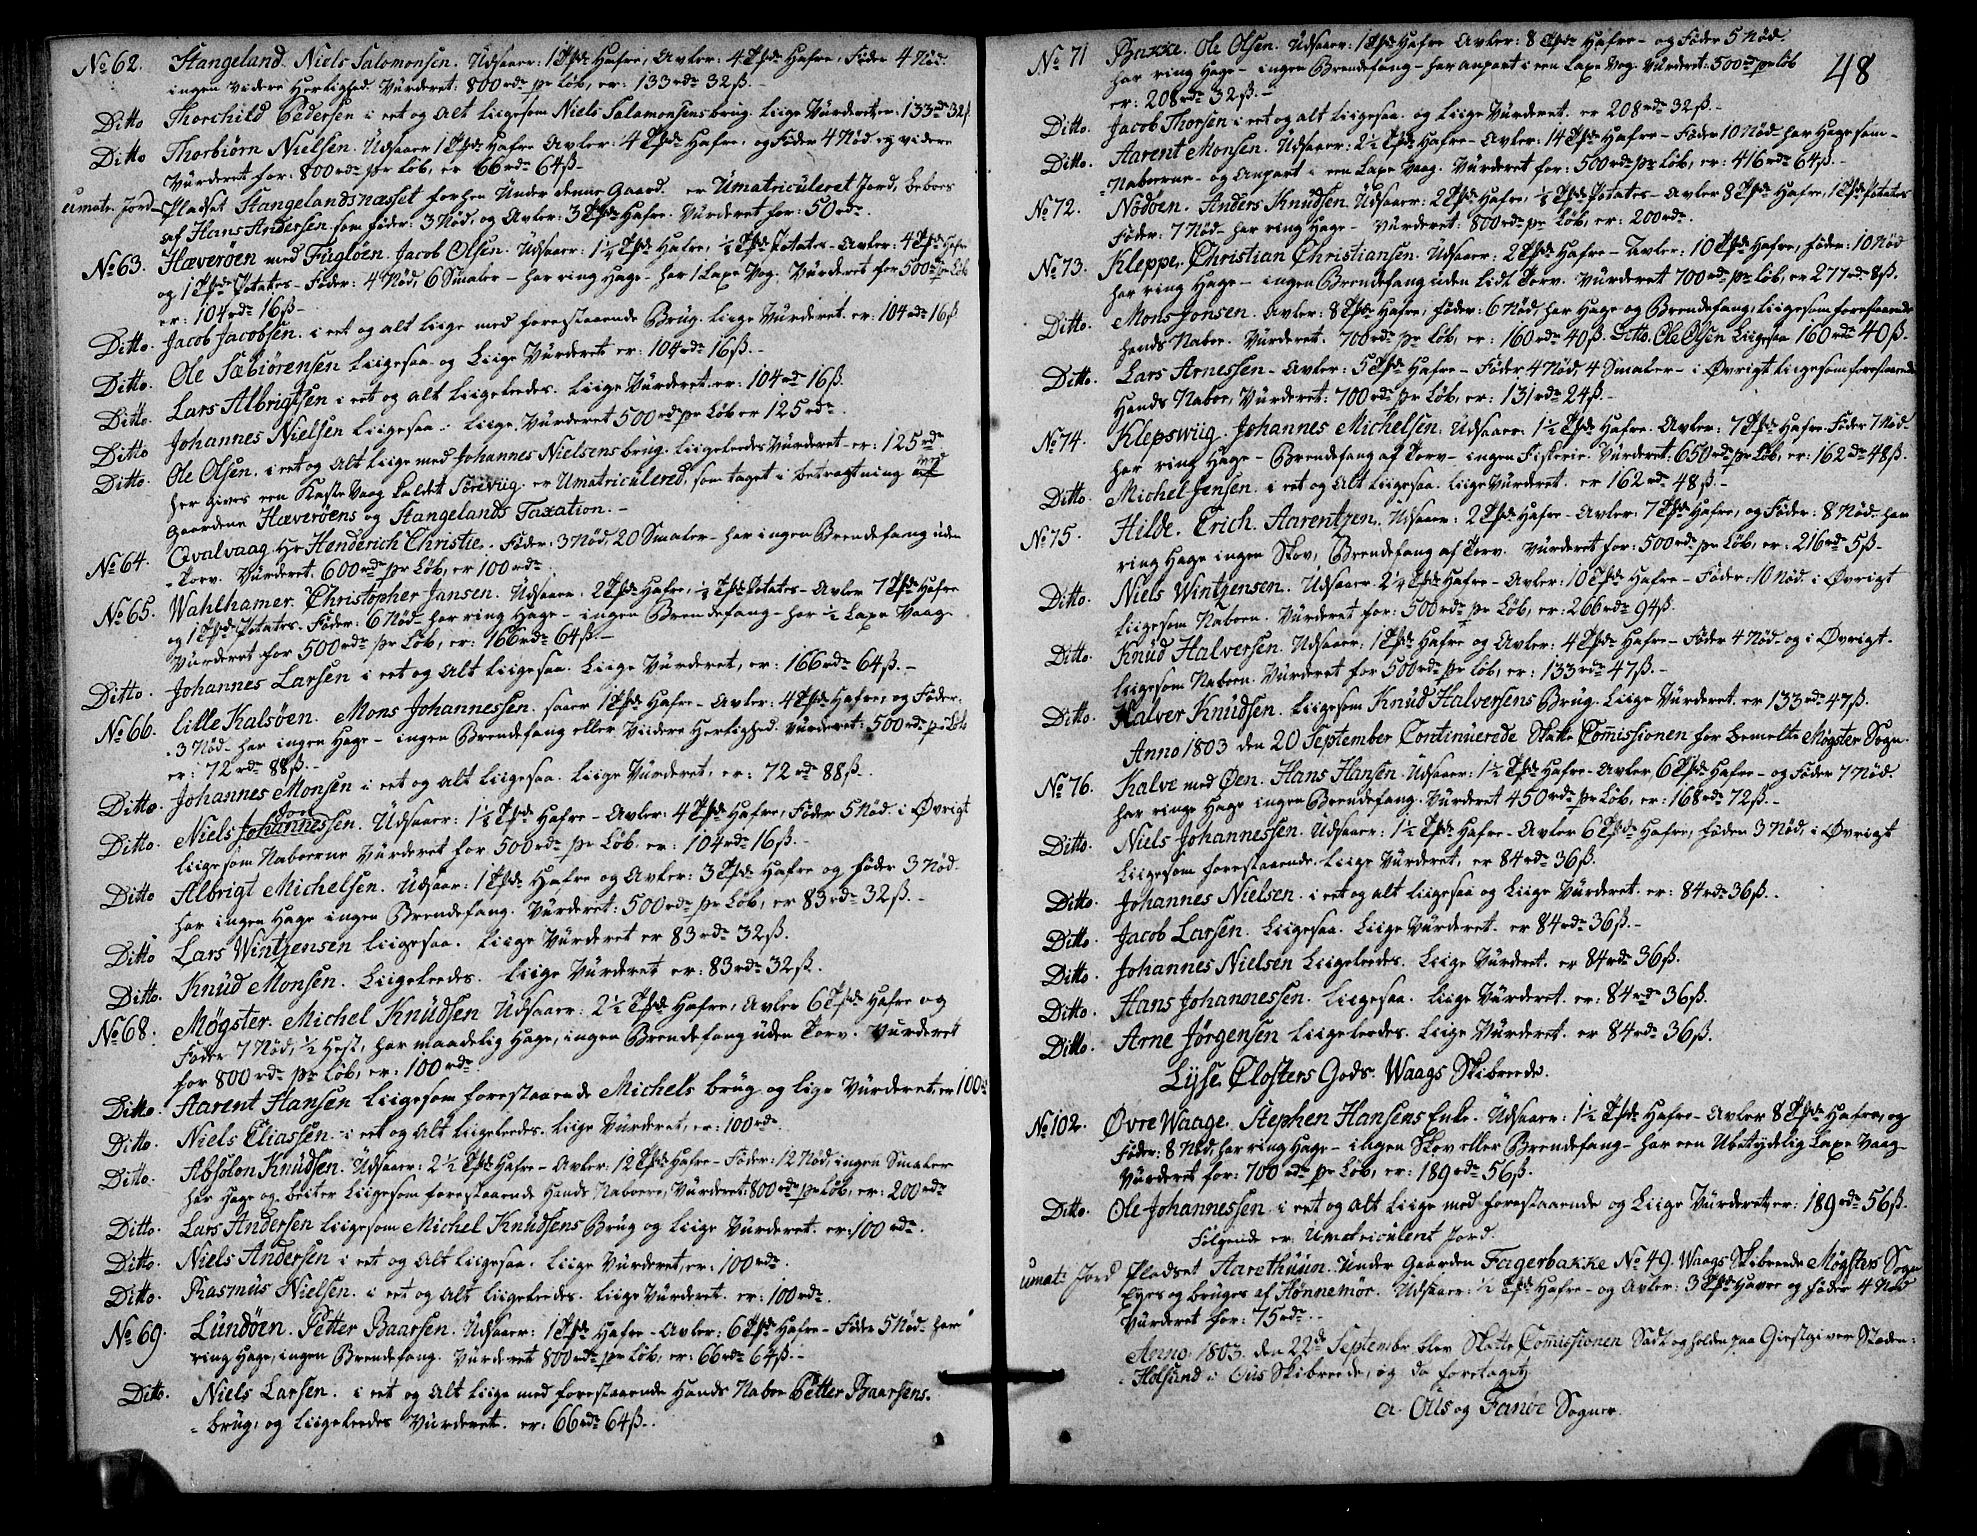 No 62. Stangeland. Niels Salomonsen. Udsaaer: 1 Tpd Hafre, Avler: 4 Tpd Hafre, Føder 4 Nød.
ingen videre Herlighed. Vurderet: 800 rdr pr Løb, er: 133 rdr 32 ß.-
Ditto Thorchild Pedersen i eet og alt ligesom Niels Salamonsens brug. liige Vurderet er: 133 rdr 32 ß
Ditto Thorbiørn Nielsen. Udsaaer 1 Tpd Hafre Avler: 4 Tpd Hafre, og Føder 4 Nød ey videre
Vurderet for: 800 rdr pr Løb, er 66 rdr 64 ß-
umatr. Jord Pladset Stangelandsnæsset Under denne Gaard. er Umatriculeret Jord, beboes
af Hans Andersen som føder: 3 Nød, og Avler: 3 Tpd Hafre. Vurderet for: 50 rdr.
No 63. Hæverøen med Fugløen. Jacob Olsen. Udsaaer: 1 1/4 Tpd Hafre, 1/4 Tpd Potates - Avler: 4 Tpd Hafre
og 1 Tpd Potates - Føder: 4 Nød, 6 Smaler - har ring Hage - har 1 Laxe Vog. Vurderet for 500 rdr pr Løb
er: 104 rdr 16 ß-
Ditto. Jacob Jacobsen. i eet og alt liige med forestaaende Brug. liige Vurderet. er: 104 rdr 16 ß
Ditto. Ole Sæbiørensen liigesaa og Liige Vurderet er: 104 rdr 16 ß.-
Ditto. Lars Albrigtsen i eet og alt liigeleedes. liige Vurderet. er: 104 rdr 16 ß.
Ditto Johannes Nielsen liigesaa. liige Vurderet 500 rdr pr Løb er 125 rdr.
Ditto. Ole Olsen. i eet og alt liige med Johannes Nielsens brug. liigeleedes Vurderet er: 125 rdr
her gives een Kaste Vaag kaldet er Umatriculered, som taget i betragtning ved
Gaardene Hæverøens og Stangelands Taxation.-
No 64. Qvalvaag Hr Henderich Christie. Føder: 3 Nød, 20 Smaler - har ingen Brendefang uden
- Torv. Vurderet. 600 rdr pr Løb, er 100 rdr.
No 65. Wahlhamer. Christopher Jansen. Udsaaer: 2 Tpd Hafre, 1/8 Tpd Potates - Avler 7 Tpd Hafre
og 1 Tpd Potates. Føder: 6 Nød - har ring Hage - ingen Brendefang - har 1/2 Laxe Vaag.
Vurderet for 500 rdr pr Løb, er: 166 rdr 64 ß.-
Ditto. Johannes Larsen i eet og alt liigesaa. Liige Vurderet, er: 166 rdr 64 ß.-
No 66. Lille Kalsøen. Mons Johannessen. saaer 1 Tpd Hafre - Avler: 4 Tpd Hafre, og Føder.
3 Nød - har ingen Hage - ingen Brendefang eller Viidere Herlighed. Vurderet: 500 rdr pr Løb
er: 72 rdr 88 ß.-
Ditto. Johannes Monsen i eet og alt liigesaa. liige Vurderet, er: 72 rdr 88 ß.
Jon
Ditto. Niels Johannessen. Udsaaer: 1 1/8 Tpd Hafre - Avler: 4 Tpd Hafre, Føder 5 Nød. i Øvrigt
liigesom Naboerne Vurderet for 500 rdr pr Løb. er: 104 rdr 16 ß.-
Ditto Albrigt Michelsen. Udsaaer: 1 Tpd Hafre og Avler: 3 Tpd Hafre og føder 3 Nød.
har ingen Hage ingen Brendefang. Vurderet: 500 rdr pr Løb, er 83 rdr 32 ß.-
Ditto Lars Wintzensen liigesaa. liige Vurderet er 83 rdr 32 ß.
Ditto. Knud Monsen. Liigeleedes. liige Vurderet er: 83 rdr 32 ß.
No 68. Møgster. Michel Knudsen Udsaaer: 2 1/2 Tpd Hafre, Avler 6 Tpd Hafre og
Føder 7 Nød, 1/2 Hest, har maadelig Hage, ingen Brendefang uden Torv. Vurderet
for 800 rdr pr Løb, er: 100 rdr.
Ditto. Aarent Hansen liigesom forestaaende Michels brug og lige Vurderet, er 100 rdr
Ditto. Niels Eliassen - i eet og alt liigeleedes. liige Vurderet, er: 100 rdr.
Ditto. Absolon Knudsen. Udsaaer: 2 1/2 Tpd Hafre - Avler: 12 Tpd Hafre - Føder: 12 Nød, ingen Smaler
har Hage og beiter liigesom forestaaende Hands Naboere, Vurderet: 800 rdr pr Løb, er: 200 rdr
Ditto. Lars Andersen liigesom Michel Knudsens Brug og liige Vurderet. er: 100 rdr.
Ditto. Niels Andersen i eet og alt liigesaa. liige Vurderet, er: 100 rdr.
Ditto. Rasmus Nielsen. i eet og alt liigeleedes. liige Vurderet. er: 100 rdr.
No 69. Lundøen. Petter Baarsen. Udsaaer: 1 Tpd Hafre - Avler: 6 Tpd Hafre - Føder 5 Nød - har
ring Hage, ingen Brendefang. Vurderet 800 rdr pr Løb, er: 66 rdr 64 ß.-
Ditto. Niels Larsen. i eet og alt liige med forestaaende Hands Naboe Petter Baarsens.
- brug, og liigeleedes Vurderet. er: 66 rdr 64 ß.
48
No 71 Bakke. Ole Olsen. Udsaaer: 1 Tpd Hafre Avler: 8 Tpd Hafre - og Føder 5 Nød.
har ring Hage - ingen Brendefang - har anpart i een Laxe Vog. Vurderet: 500 rdr pr Løb
er: 208 rdr 32 ß.-
Ditto. Jacob Thorsen i eet og alt liigesaa. og liige Vurderet. er 208 rdr 32 ß.-
Ditto. Aarent Monsen. Udsaaer: 2 1/2 Tpd Hafre - Avler: 14 Tpd Hafre - Føder 10 Nød. har Hage som-
- Naboerne - og Anpart i een Laxe Vaag. Vurderet for: 500 rdr pr Løb, er: 416 rdr 64 ß.-
No 72. Nødøen. Anders Knudsen. Udsaaer: 2 Tpd Hafre, 1/8 Tpd Potates - Avler 8 Tpd Hafre, 1 Tpd Potates
Føder: 7 Nød - har ring Hage - Vurderet: 800 rdr pr Løb, er: 200 rdr.
No 73. Kleppe. Christian Christiansen. Udsaaer: 2 Tpd Hafre - Avler: 10 Tpd Hafre, føder: 10 Nød
har ring Hage - ingen Brendefang uden lidt Torv. Vurderet 700 rdr pr Løb, er 277 rdr 8 ß.
Ditto. Mons Jonsen. Avler: 8 Tpd Hafre, føder: 6 Nød, har Hage og Brendefang, liigesom forestaaende
hands Naboe. Vurderet. 700 rdr pr Løb, er: 160 rdr 40 ß. Ditto. Ole Olsen Liigesaa 160 rdr 40 ß.
Ditto. Lars Arnessen - Avler: 5 Tpd Hafre - Føder 4 Nød, 4 Smaler - i Øvrigt liigesom forestaaende
Hands Naboe, Vurderet: 700 rdr pr Løb, er: 131 rdr 24 ß.-
No 74. Klepswiig. Johannes Michelsen. Udsaaer: 1 1/2 Tpd Hafre. Avler: 7 Tpd Hafre Føder 7 Nød-
har ring Hage - Brendefang af Torv - ingen Fiskerie. Vurderet: 650 rdr pr Løb, er: 162 rdr 48 ß.
Ditto. Michel Jensen. i eet og alt liigesaa. liige Vurderet. er 162 rdr 48 ß.-
No 75. Hilde. Erich Aarentzen. Udsaaer: 2 Tpd Hafre - Avler: 7 Tpd Hafre, og Føder: 8 Nød - har
ring Hage ingen Skov, Brendefang af Torv. Vurderet for: 500 rdr pr Løb, er: 216 rdr 5 ß-
Ditto. Niels Wintzensen. Udsaaer. 2 1/4 Tpd Hafre - Avler: 10 Tpd Hafre - Føder: 10 Nød. i Øvrigt
liigesom Naboen. Vurderet for: 500 rdr pr Løb, er: 266 rdr 94 ß.
Ditto. Knud Halversen. Udsaaer: 1 Tpd Hafre og Avler: 4 Tpd Hafre - Føder 4 Nød - og i Øvrigt.
liigesom Naboen. Vurderet for 500 rdr pr Løb, er: 133 rdr 47 ß.-
Ditto. Halver Knudsen. liigesom Knud Halversens Brug. Liige Vurderet. er 133 rdr 47 ß.
Anno 1803 den 20 September Continuerede Skatte Commissionen for bemelte Møgster Sogn.
No 76. Kalve med Øen. Hans Hansen. Udsaaer: 1 1/2 Tpd Hafre - Avler 6 Tpd Hafre - og Føder 7 Nød.
har ringe Hage ingen Brendefang. Vurderet 450 rdr pr Løb, er: 168 rdr 72 ß.-
Ditto. Niels Johannessen. Udsaaer: 1 1/2 Tpd Hafre - Avler 6 Tpd Hafre, føder 3 Nød, i Øvrigt
Liigesom forestaaende. Liige Vurderet, er 84 rdr 36 ß.
Ditto. Johannes Nielsen. i eet og alt liigesaa og liige Vurderet. er: 84 rdr 36 ß.
Ditto. Jacob Larsen. Liigesaa. Liige Vurderet. er 84 rdr 36 ß.-
Ditto. Johannes Nielsen Liigeleedes. Liige Vurderet. er 84 rdr 36 ß.
Ditto. Hans Johannessen. Liigesaa. liige Vurderet. er: 84 rdr 36 ß.
Ditto. Arne Jørgensen liigeleedes. Liige Vurderet. er 84 rdr 36 ß.
Lyse Closters Gods. Waags Skibreede.
No 102. Øvre Waage. Stephen Hansens Enke. Udsaaer: 1 1/2 Tpd Hafre - Avler 8 Tpd Hafre, og
Føder: 8 Nød, har ring Hage - ingen Skov eller Brendefang - har een Ubetydelig Laxe Vaag-
Vurderet for: 700 rdr pr Løb, er: 189 rdr 56 ß.
Ditto. Ole Johannessen i eet og alt liige med forestaaende og Liige Vurderet, er: 189 rdr 56 ß.
Følgende er Umatriculeret Jord.
umatr Jord Pladset Aarethuun. Under Gaarden Fagerbakke No 49. Waags Skibreede Møgsters Sogn
Eyes og bruges af Hønnemør. Udsaaer: 1/2 Tpd Hafre - og Avler: 3 Tpd Havre og føder 4 Nød
Vurderet for: 75 rdr.-
Anno 1803. den 22de September. blev Skatte Commissionen Sadt og holden paa Giestgiver Staden:
- Holsund i Ous Skibreede, og da foretaget
a. Ous og Fanøe Sogner.